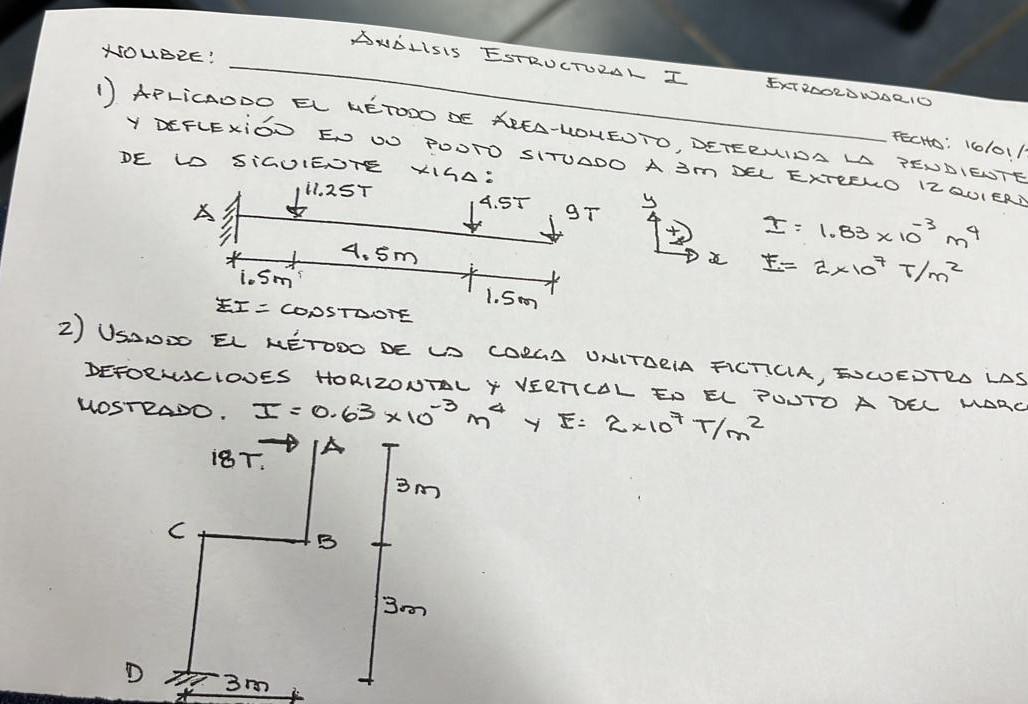 ANÁLISIS ESTRUCTURAL I EXTRAORDINARIO
NOMBRE: FECHA: 16/01/
1) APLICANDO EL MÉTODO DE ÁREA-MOMENTO, DETERMINA LA PENDIENTE
Y DEFLEXIÓN EN UN PUNTO SITUADO A 3m DEL EXTREMO IZQUIERD
DE LA SIGUIENTE VIGA:
11.25T 4.5T 9T y
A + x I = 1.83 x 10⁻³ m⁴
1.5m 4.5m 1.5m E = 2x10⁷ T/m²
EI = CONSTANTE
2) USANDO EL MÉTODO DE LA CARGA UNITARIA FICTICIA, ENCUENTRA LAS
DEFORMACIONES HORIZONTAL Y VERTICAL EN EL PUNTO A DEL MARC
MOSTRADO. I = 0.63 x 10⁻³ m⁴ Y E = 2x10⁷ T/m²
18T. A
3m
C B
3m
D 3m